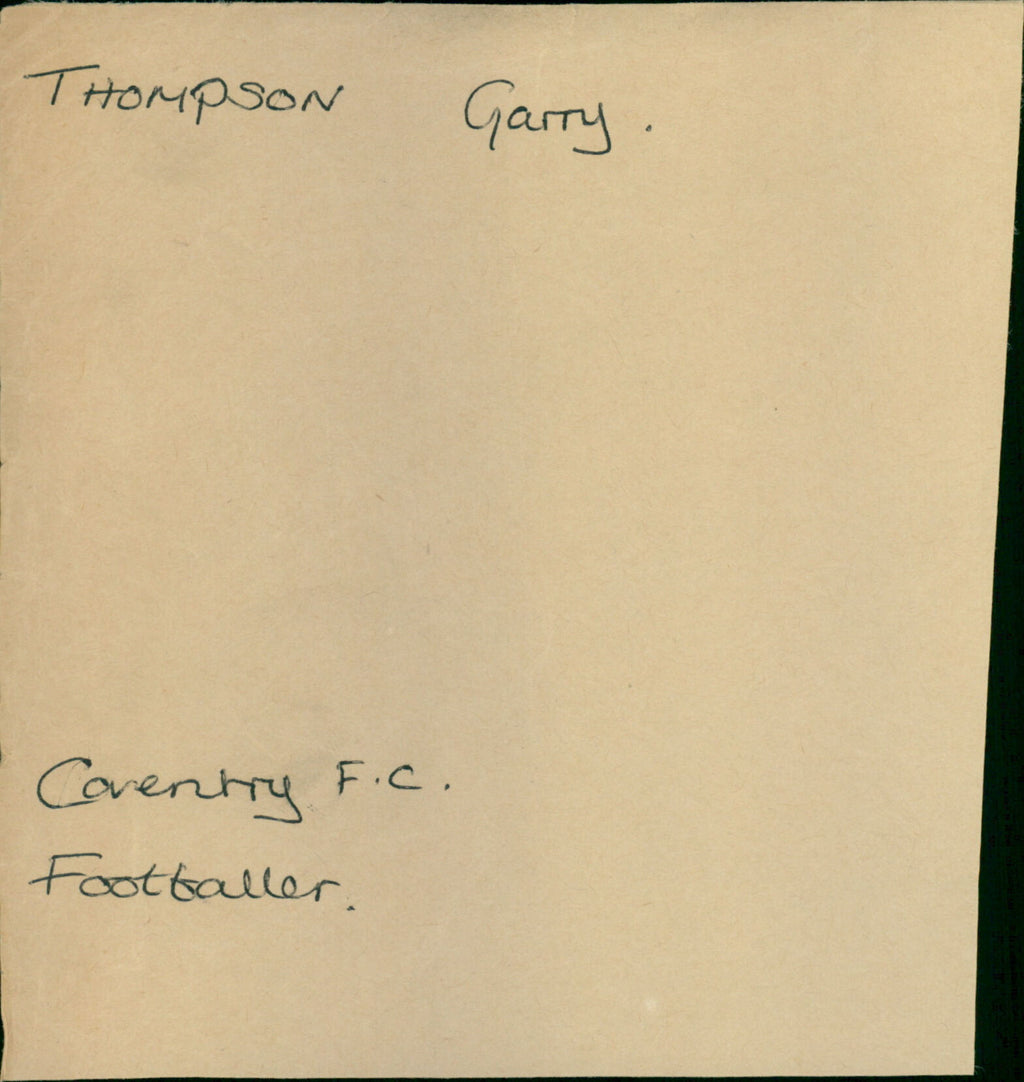 THOMPSON Garry.
Coventry F.C.
Footballer.